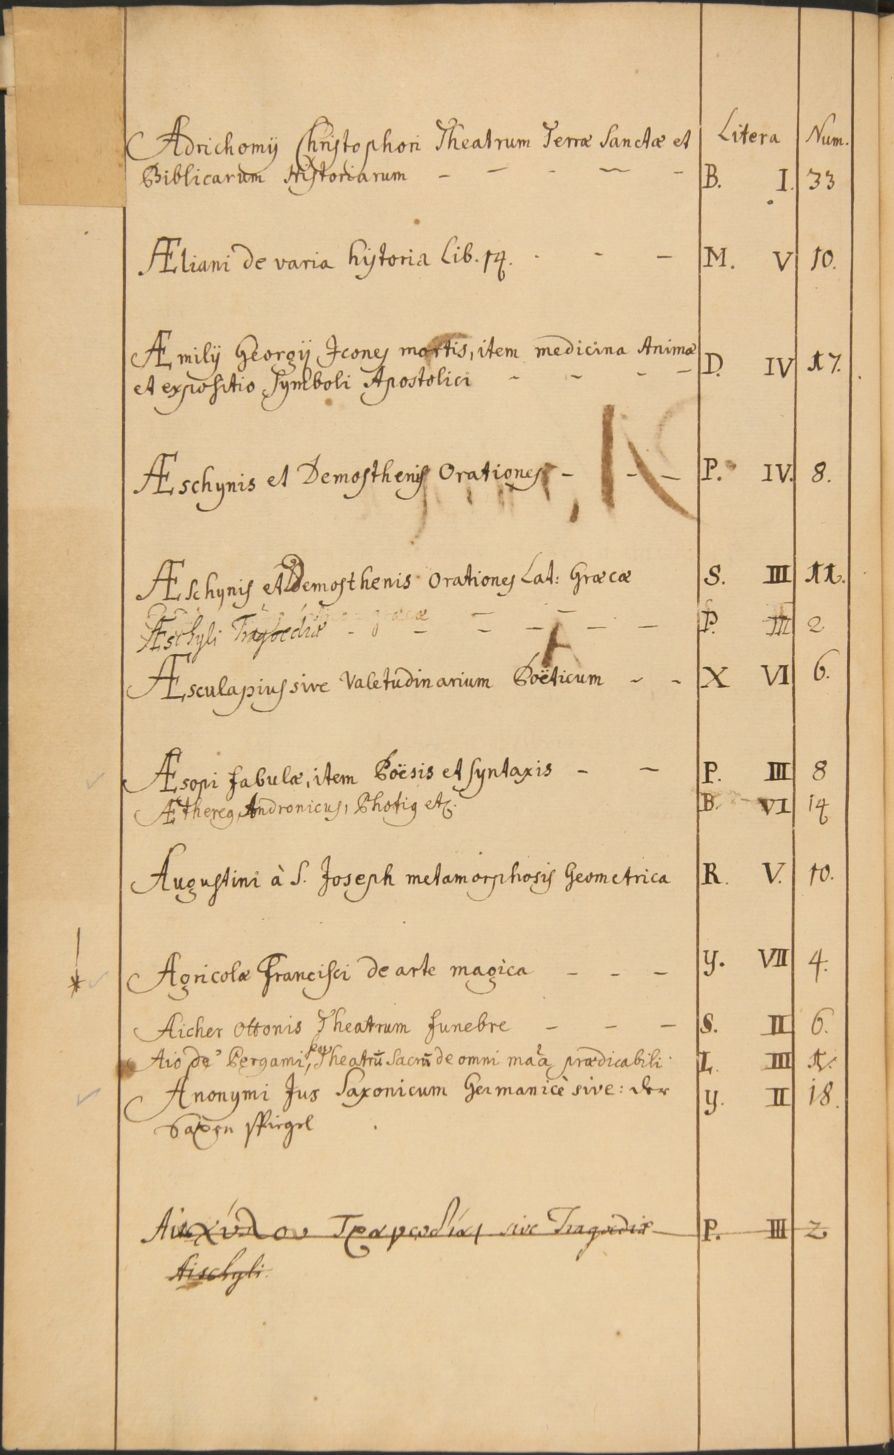 Litera Num.
Adrichomij Christophori Theatrum Terræ Sanctæ et
Biblicarum Historiarum - - - - - B. I. 33
Æliani de varia historia Lib. 14. - - - M. V 10.
Æmilij Georgij Icones mortis, item medicina Animæ
et expositio Symboli Apostolici - - - - D. IV 17.
Æschynis et Demosthenis Orationes - - - P. IV. 8.
Æschynis et Demosthenis Orationes Lat: Græcæ S. III 11.
Æschyli Tragoediæ - - - - - - P. III 2
Æsculapius sive Valetudinarium Poëticum - - X VI 6.
Æsopi fabulæ, item Poësis et Syntaxis - - P. III 8
Andronicus, Photig etc. B. VI 14
Augustini à S. Joseph metamorphosis Geometrica R. V. 10.
Agricolæ Francisci de arte magica - - - y. VII 4.
Aicher Ottonis Theatrum funebre - - - S. II 6.
Aio de Pergami, Theatrũ Sacrũ de omni ma͞a prædicabili L. III 1.
Anonymi Jus Saxonicum Germanicè sive: der y. II 18.
Saxen Spiegel
Αἰσχύλου Τραγωδίαι sive Tragoediæ P. III 2
Aischyli.